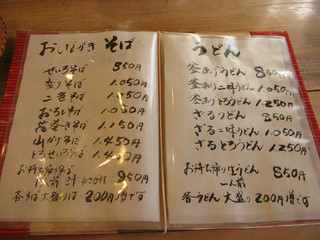 おしながき そば
せいろそば 850円
変りそば 1,050円
二色そば 1,050円
おろしそば 1,050円
茶巻きそば 1,150円
山かけそば 1,450円
とろせいろそば 1,450円
お持ち帰りそば
一人前 汁 850円
各そば大盛りは 200円増です
うどん
釜あげうどん 850円
釜あげ二味うどん 1,050円
釜あげとろうどん 1,250円
ざるうどん 850円
ざる二味うどん 1,050円
ざるとろうどん 1,250円
お持ち帰りうどん
一人前 850円
各うどん大盛り 200円増です